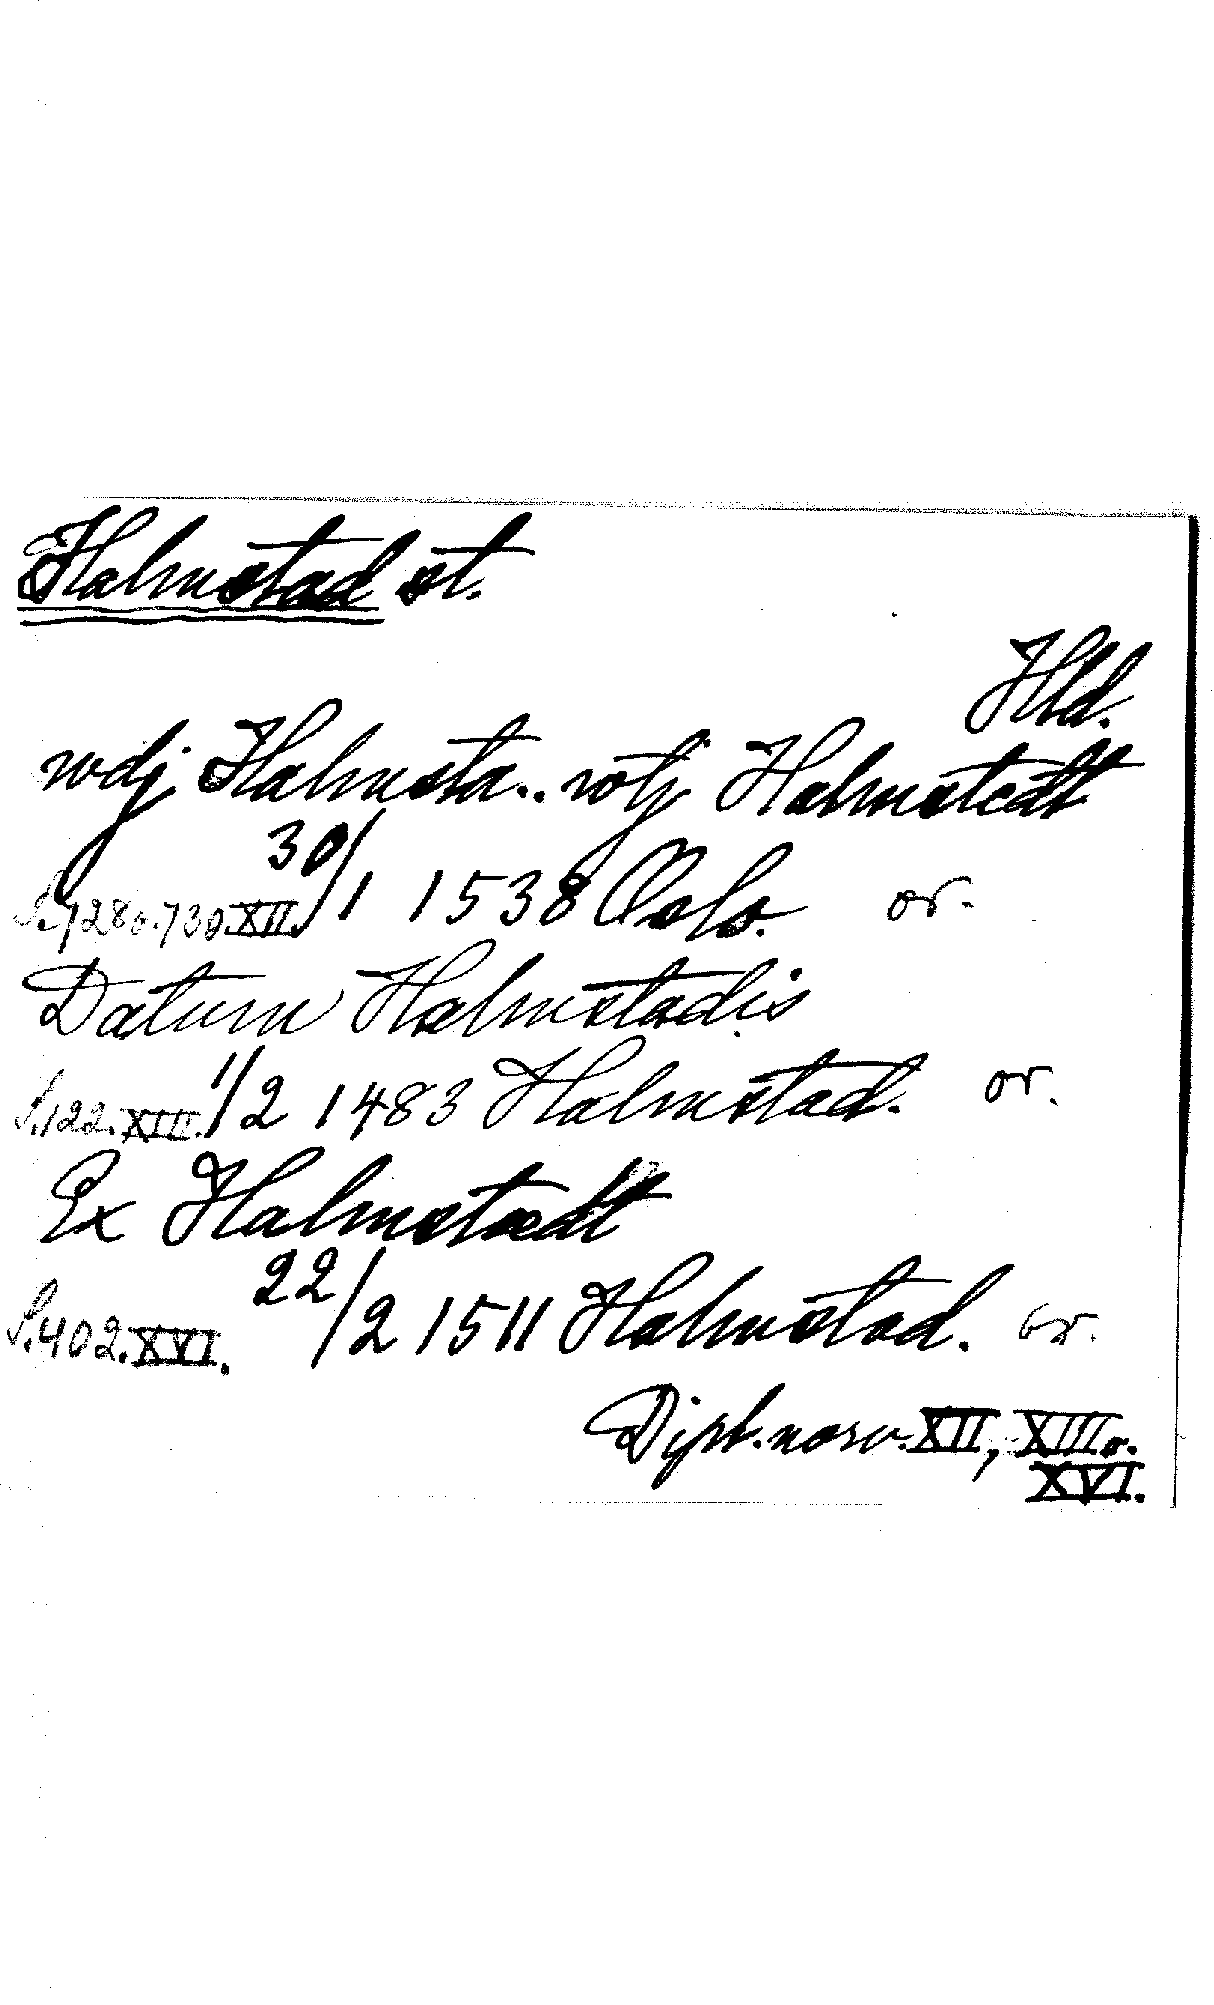 Halmstad st.
Hld.
wdj Halmsta.. wtj Halmstedt
S. 728 o. 730. XII. 30/1 1538 Oslo. or.
Datum Halmstadis
S. 122. XIII. 1/2 1483 Halmstad. or.
Ex Halmstædt
S. 402. XVI. 22/2 1511 Halmstad. or.
Dipl. norv. XII, XIII o.
XVI.